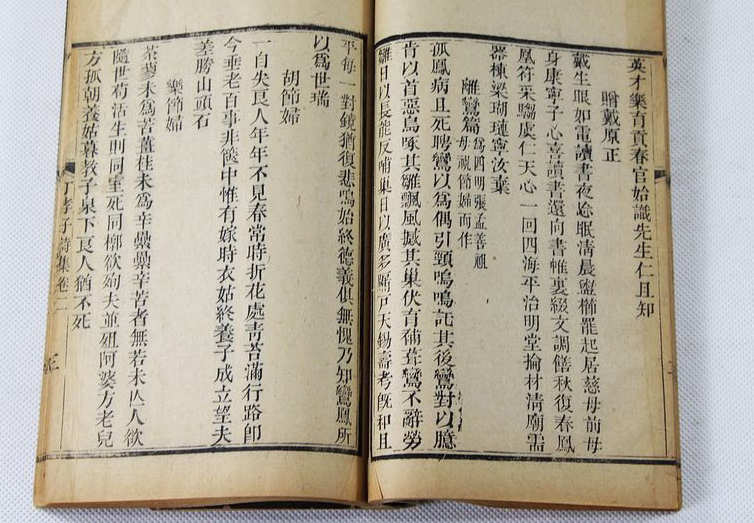 英才樂育貢春官始識先生仁且知
贈戴原正
戴生眼如電讀書夜忘眠清晨盥櫛罷起居慈母前母
身康寧子心喜讀書還向書帷裏綴文調僭秋復春鳳
凰符采騶虞仁天心一回四海平治明堂掄材清廟需
器棟梁瑚璉寧汝棄
離鸞篇 為四明張孟善祖
母視節婦而作
孤鳳病且死聘鸞以為偶引頸嗚嗚託其後鸞對以臆
肯以首惡鳥啄其雛飄風撼其巢伏育補葺鸞不辭勞
雛日以長能反哺巢日以廣多牖戶天錫壽考既和且
平每一對鏡猶復悲鳴始終德義俱無愧乃知鸞鳳所
以為世瑞
胡節婦
一自失良人年年不見春常時折花處靑苔滿行路卽
今垂老百事非篋中惟有嫁時衣姑終養子成立望夫
差勝山頭石
樂節婦
茶蓼未為苦薑桂未為辛鼎鼎辛苦者無若未亾人欲
隨世苟活生則同室死同槨欲殉夫並殂阿婆方老兒
方孤朝養姑暮教子泉下良人猶不死
丁孝子詩集卷二
三